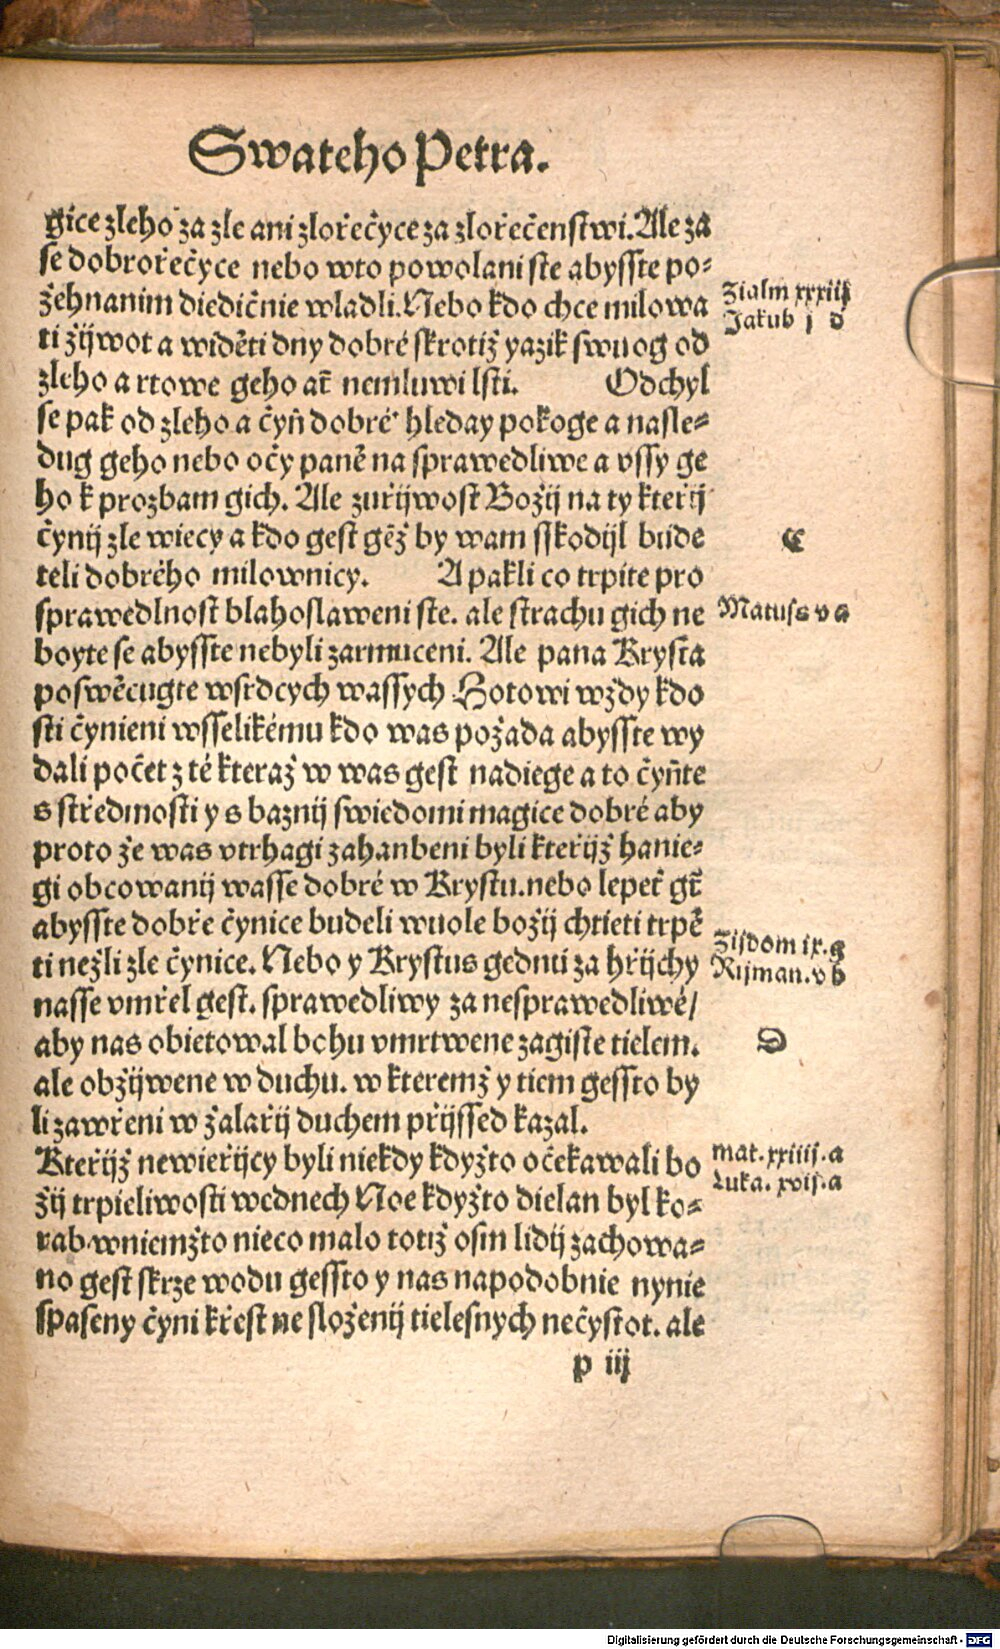 Swateho Petra.
gice zleho za zle ani zlořečyce za zlořečenstwi. Ale za
se dobrořečyce nebo wto powolani ste abysste po⸗
žehnanim diedičnie wladli. Nebo kdo chce milowa
Zialm xxxiij
Jakub j d
ti žijwot a widěti dny dobré skrotiž yazik swuog od
zleho a rtowe geho at̃ nemluwi lsti. Odchyl
se pak od zleho a čyň dobré hleday pokoge a nasle⸗
dug geho nebo očy paně na sprawedliwe a vssy ge
ho k prozbam gich. Ale zuřijwost Božij na ty kteřij
čynij zle wiecy a kdo gest gēž by wam sskodijl bude
C
teli dobrého milownicy. A pakli co trpite pro
sprawedlnost blahoslaweni ste. ale strachu gich ne
Matuss v a
boyte se abysste nebyli zarmuceni. Ale pana Krysta
poswěcugte wsrdcych wassych Hotowi wždy kdo
sti čynieni wsselikému kdo was požada abysste wy
dali počet z té kteraž w was gest nadiege a to čyňte
s středmosti y s baznij swiedomi magice dobré aby
proto že was vtrhagi zahanbeni byli kteřijž hanie⸗
gi obcowanij wasse dobré w Krystu. nebo lepet̃ gt̃
abysste dobře čynice budeli wuole božij chtieti trpě
ti nežli zle čynice. Nebo y Krystus gednu za hřijchy
Zijdom ix. g
Rijman. v b
nasse vmřel gest. sprawedliwy za nesprawedliwé/
aby nas obietowal bohu vmrtwene zagiste tielem.
D
ale obžijwene w duchu. w kteremž y tiem gessto by
li zawřeni w žalařij duchem přijssed kazal.
Kteřijž newieřijcy byli niekdy kdyžto očekawali bo
mat. xxiiij. a
Luka. xvij. a
žij trpieliwosti wednech Noe kdyžto dielan byl ko⸗
rab wniemžto nieco malo totiž osm lidij zachowa⸗
no gest skrze wodu gessto y nas napodobnie nynie
spaseny čyni křest ne složenij tielesnych nečystot. ale
p iij
Digitalisierung gefördert durch die Deutsche Forschungsgemeinschaft - DFG